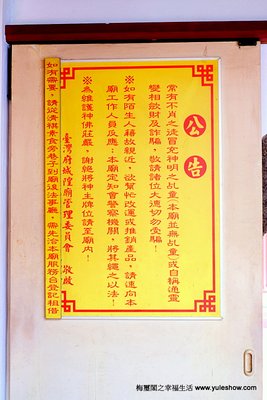 公告
常有不肖之徒冒充神明之乩童(本廟並無乩童)或自稱通靈
變相斂財及詐騙，敬請諸位大德切勿受騙！
※如有陌生人藉故親近，欲幫忙改運或推銷產品，請速向本
廟工作人員反應；本廟定知會警察機關，將其繩之以法！
※為維護神佛莊嚴，謝絕將神主牌位請至廟內！
臺灣府城隍廟管理委員會　敬啟
如有需要，請從清祺素食旁巷子到廟後法事廳，需先洽本廟服務台登記租借
梅璽閣之幸福生活 www.yuleshow.com